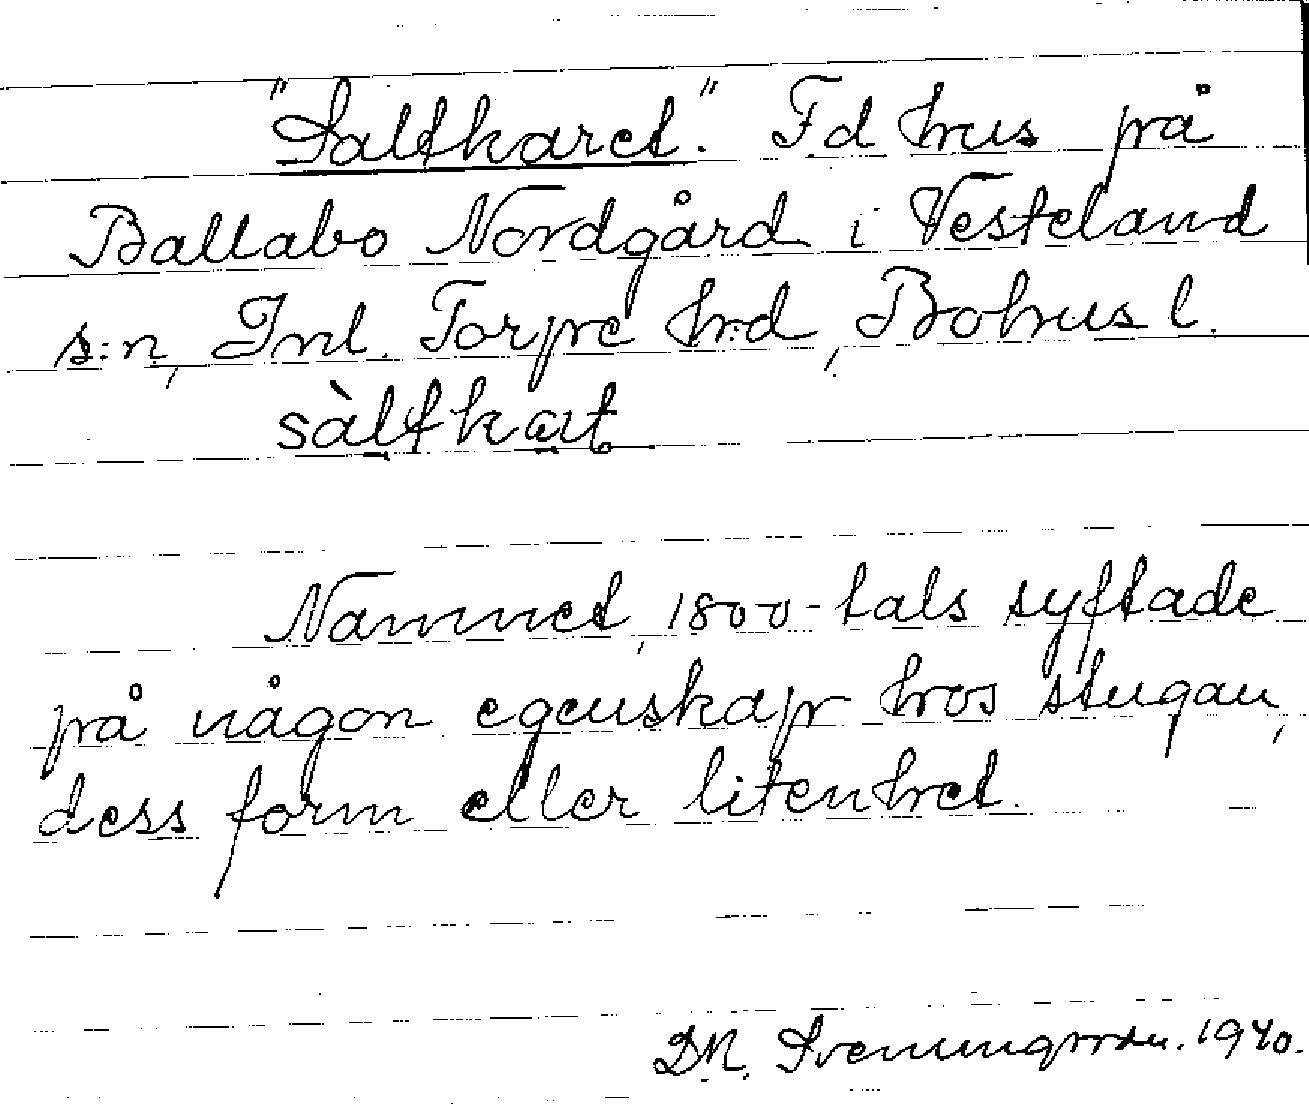 "Saltkaret." F.d hus på
Ballabo Nordgård i Vesteland
s:n, Inl. Torpe hrd, Bohus l.
sàltkart
Namnet, 1800-tals syftade
på någon egenskap hos stugan,
dess form eller litenhet.
D.N. Svenungsson. 1940.